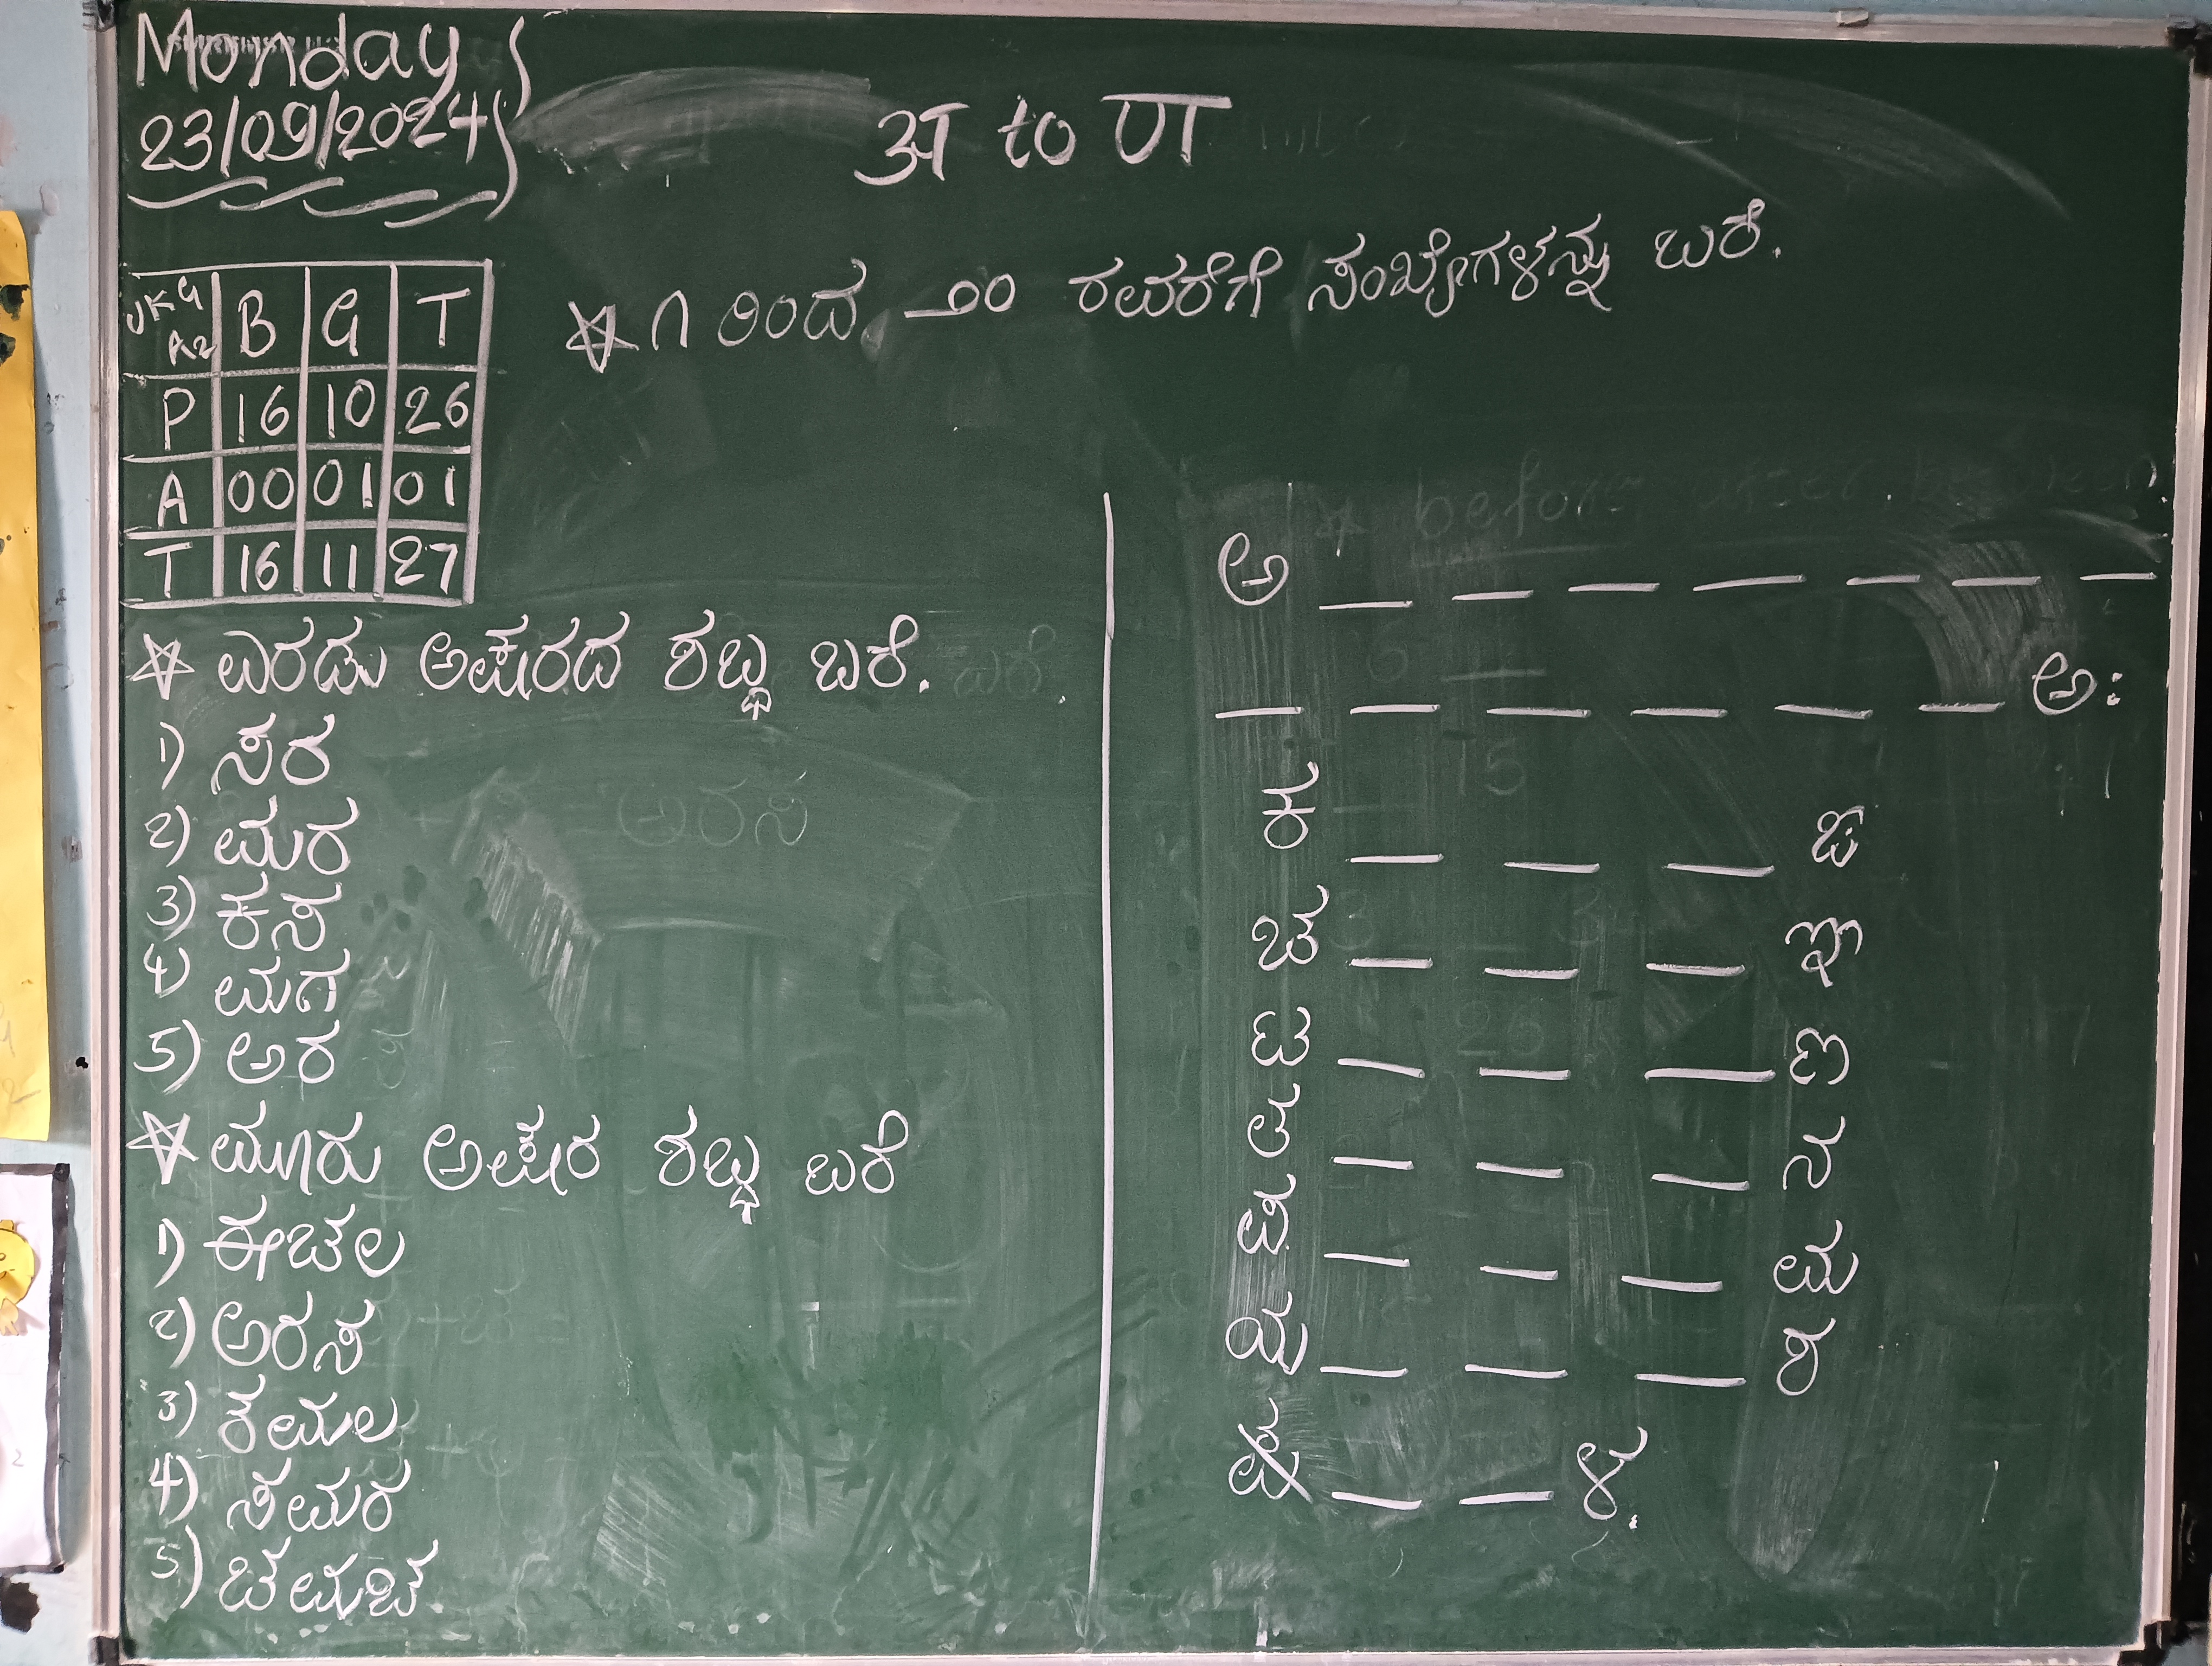 Monday
23/09/2024
अ to ण
೧ ರಿಂದ ೨೦ ರವರೆಗೆ ಸಂಖ್ಯೆಗಳನ್ನು ಬರೆ.
UKG A2 B G T
P 16 10 26
A 00 01 01
T 16 11 27
ಎರಡು ಅಕ್ಷರದ ಶಬ್ಧ ಬರೆ.
1) ಸರ
2) ಮರ
3) ಕಸ
4) ಮಗ
5) ಅರ
ಮೂರು ಅಕ್ಷರ ಶಬ್ಧ ಬರೆ
1) ಈಚಲ
2) ಅರಸ
3) ಕಮಲ
4) ಸಮರ
5) ಚಮಚ
ಅ _ _ _ _ _ _ _
_ _ _ _ _ _ ಅಃ
ಕ _ _ _ ಙ
ಚ _ _ _ ಞ
ಟ _ _ _ ಣ
ತ _ _ _ ನ
ಪ _ _ _ ಮ
ಯ _ _ _ ಶ
ಷ _ _ ಳ.